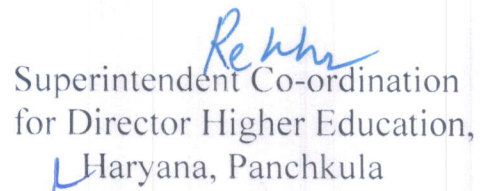 Superintendent Co-ordination
for Director Higher Education,
Haryana, Panchkula